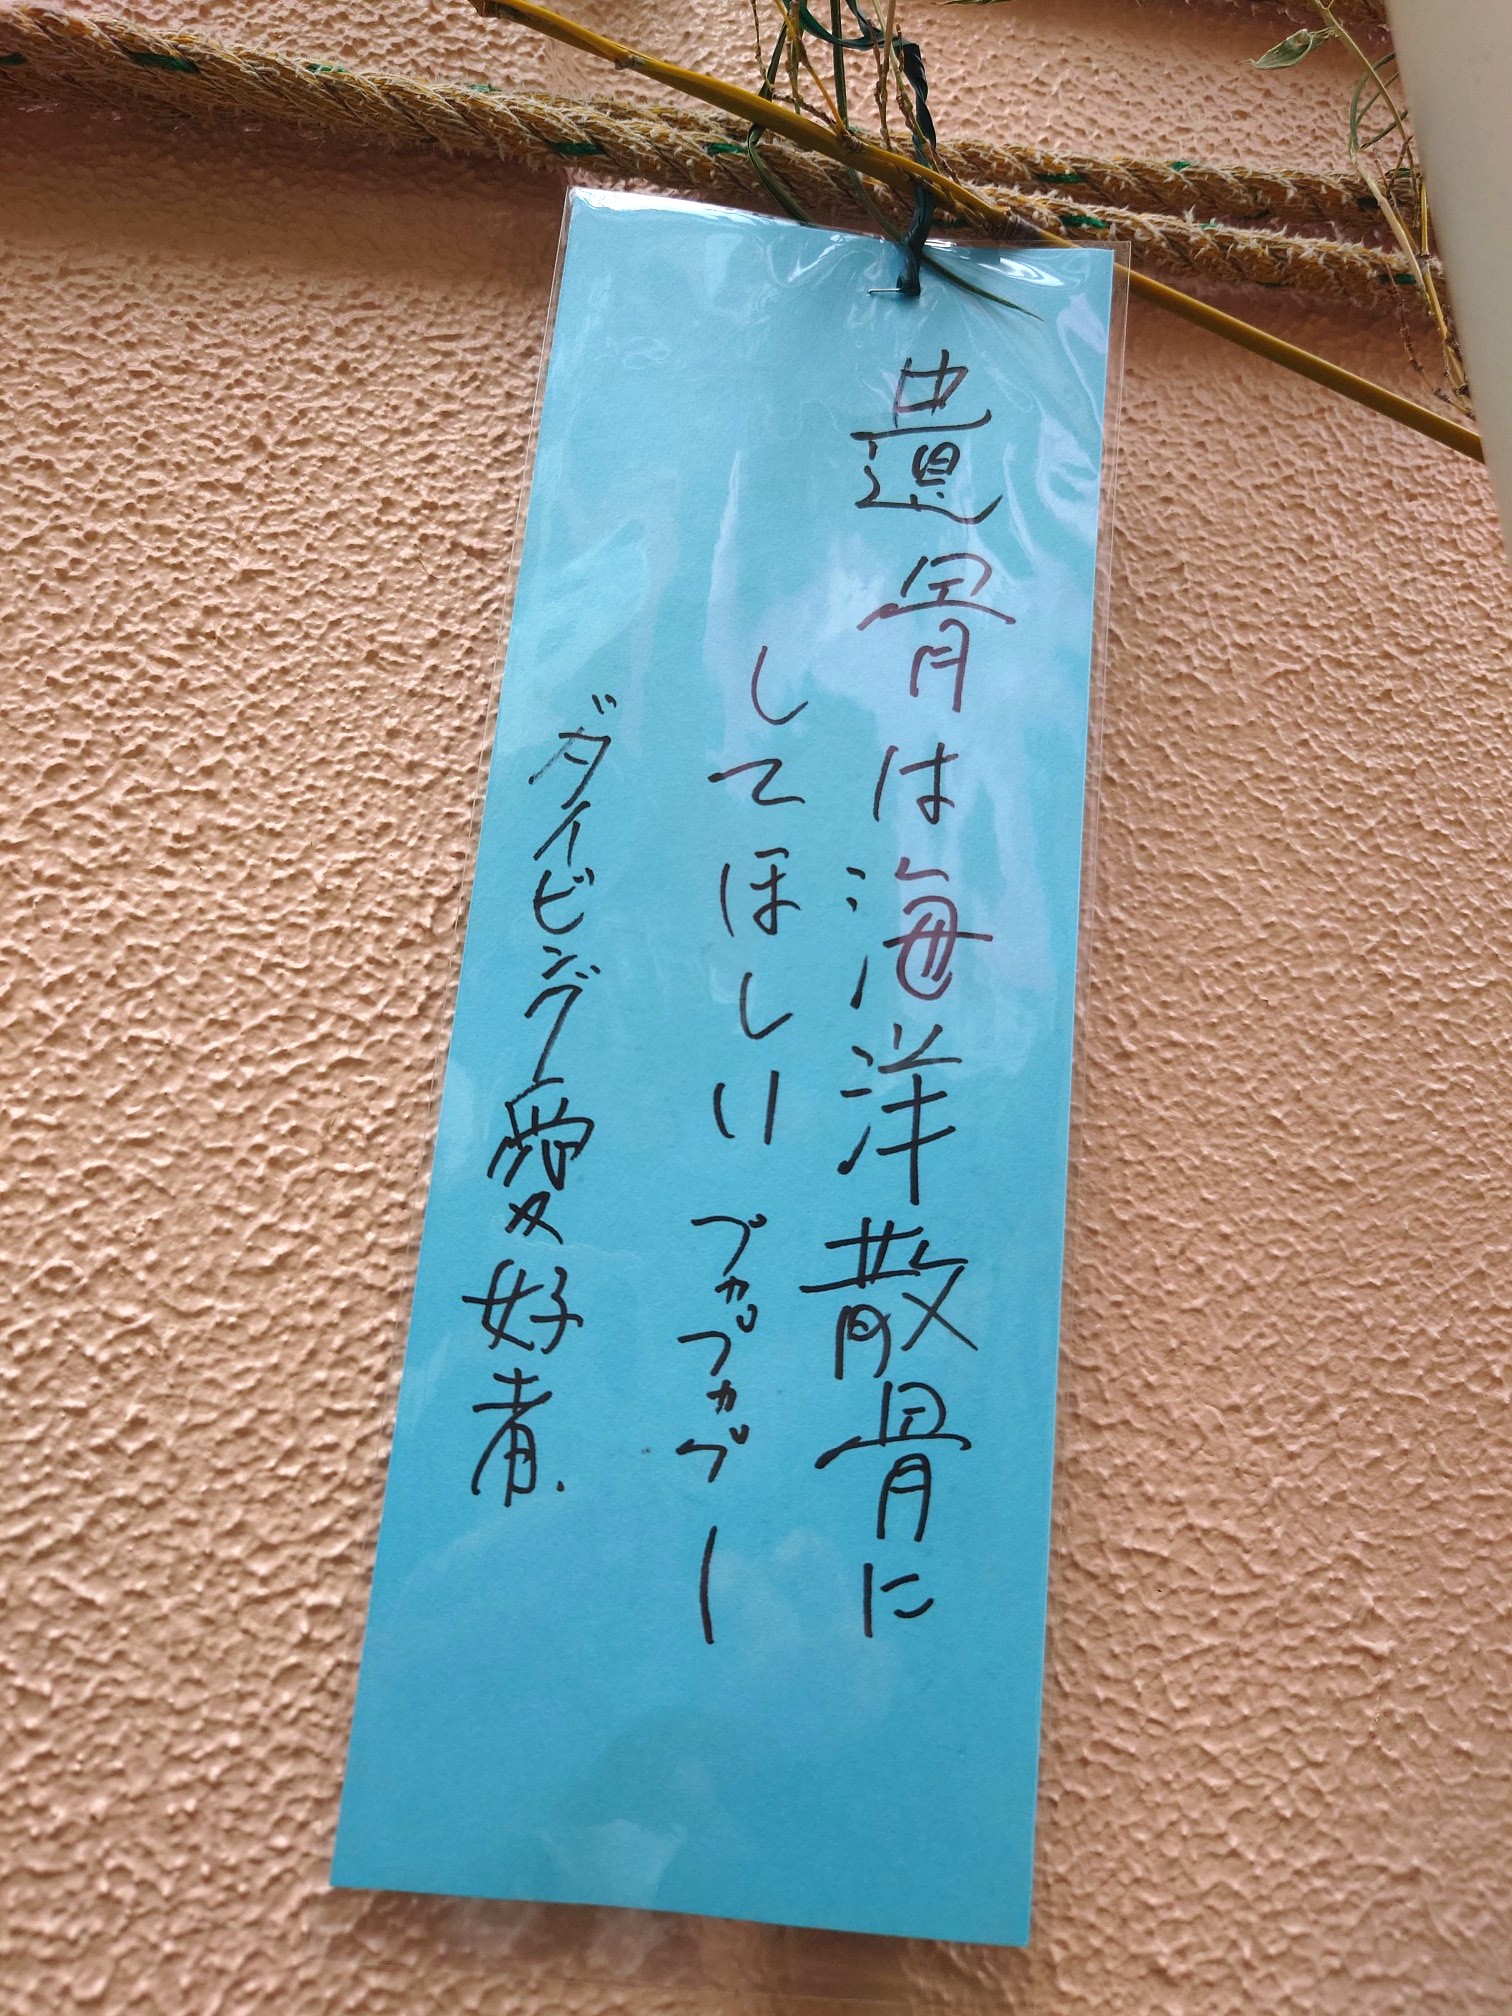 遺骨は海洋散骨に
してほしい プカプカプー
ダイビング愛好者.